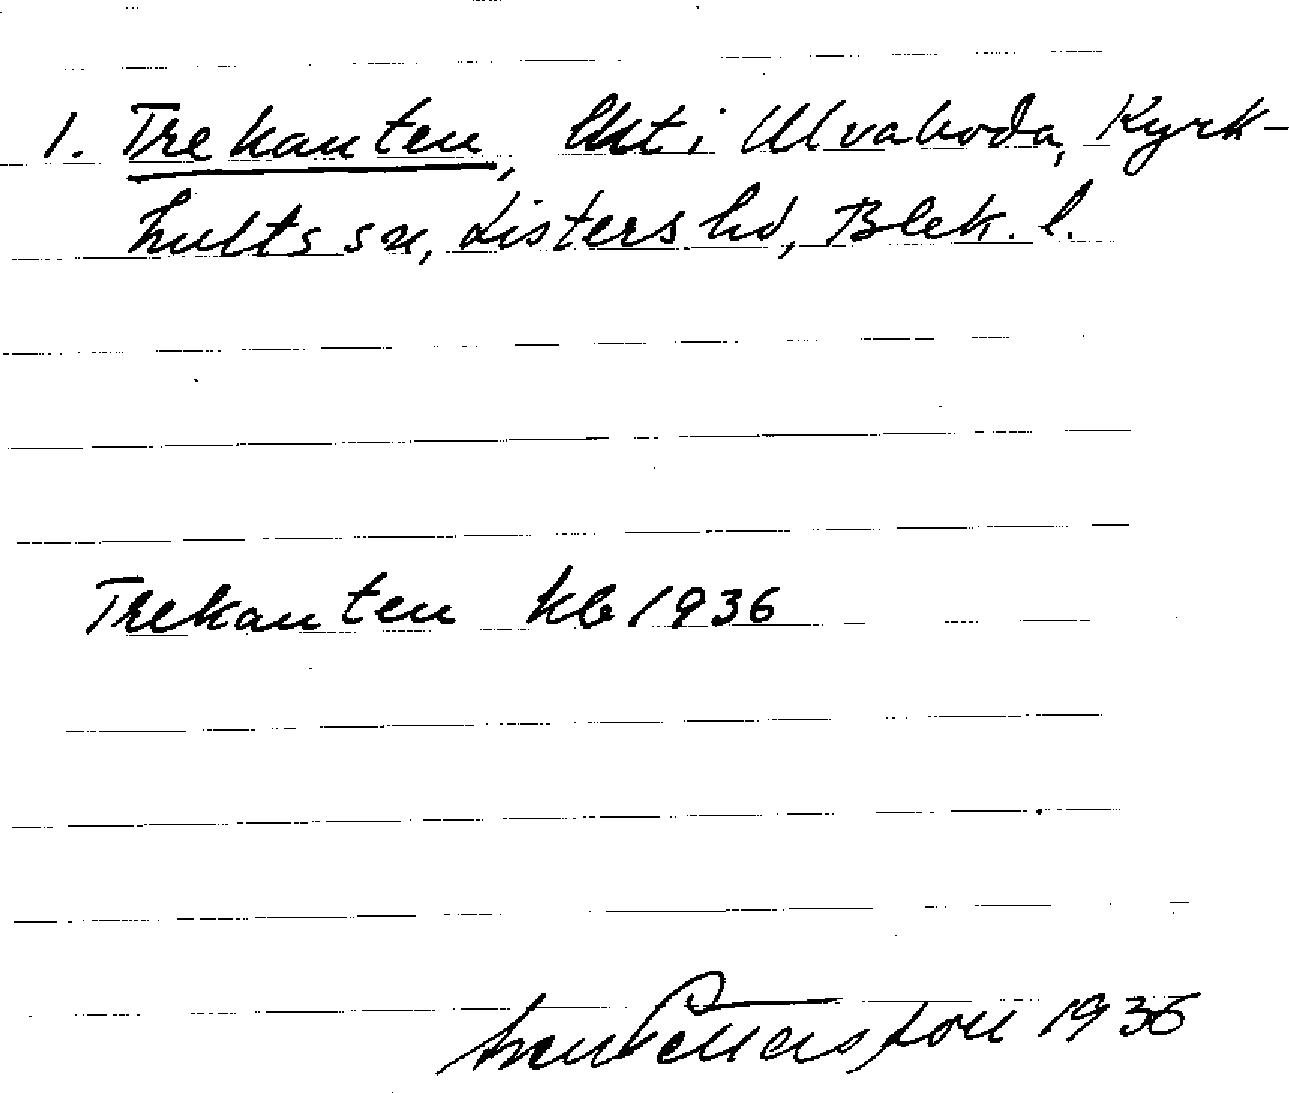 1. Trekanten, lht i Ulvaboda, Kyrk-
hults sn, Listers hd, Blek. l.
Trekanten kb 1936
Petterson 1936